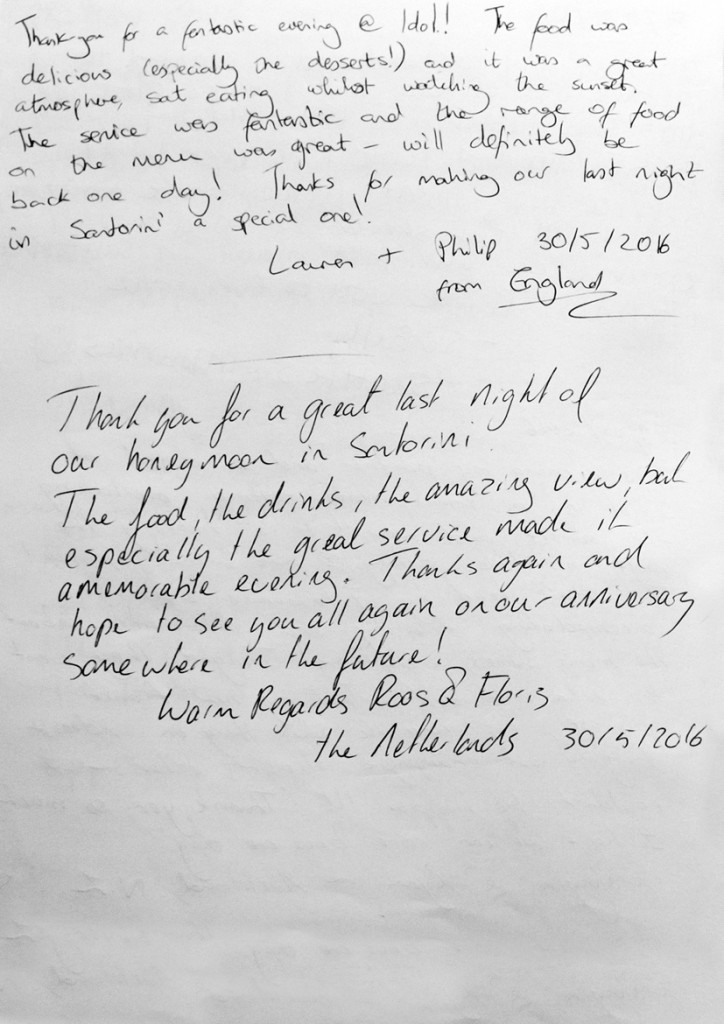 Thank you for a fantastic evening @ Idol! The food was
delicious (especially the desserts!) and it was a great
atmosphere, sat eating whilst watching the sunset.
The service was fantastic and the range of food
on the menu was great - will definitely be
back one day! Thanks for making our last night
in Santorini a special one!
Lauren + Philip 30/5/2016
from England
Thank you for a great last night of
our honeymoon in Santorini.
The food, the drinks, the amazing view, but
especially the great service made it
a memorable evening. Thanks again and
hope to see you all again on our anniversary
somewhere in the future!
Warm Regards Roos & Floris
the Netherlands 30/5/2016